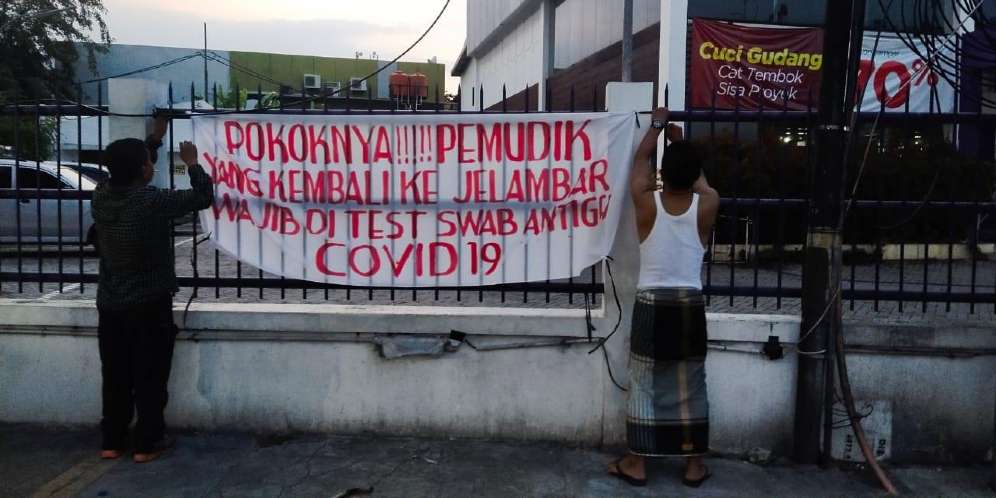 POKOKNYA!!!!! PEMUDIK
YANG KEMBALI KE JELAMBAR
WAJIB DI TEST SWAB ANTIGEN
COVID 19
Cuci Gudang
Cat Tembok
Sisa Proyuk
70%